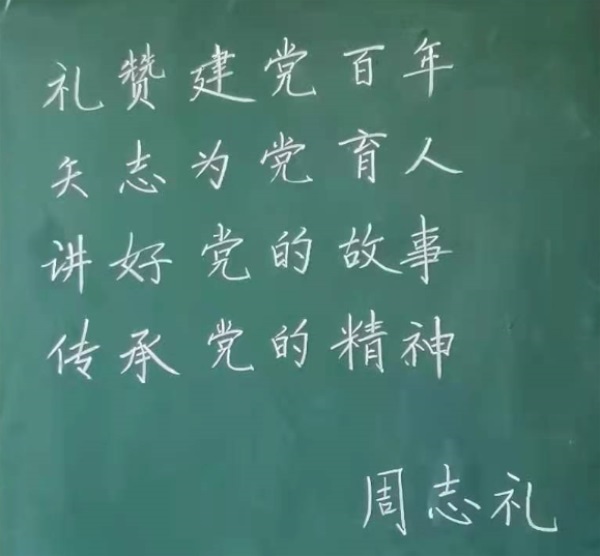 礼赞建党百年
矢志为党育人
讲好党的故事
传承党的精神
周志礼